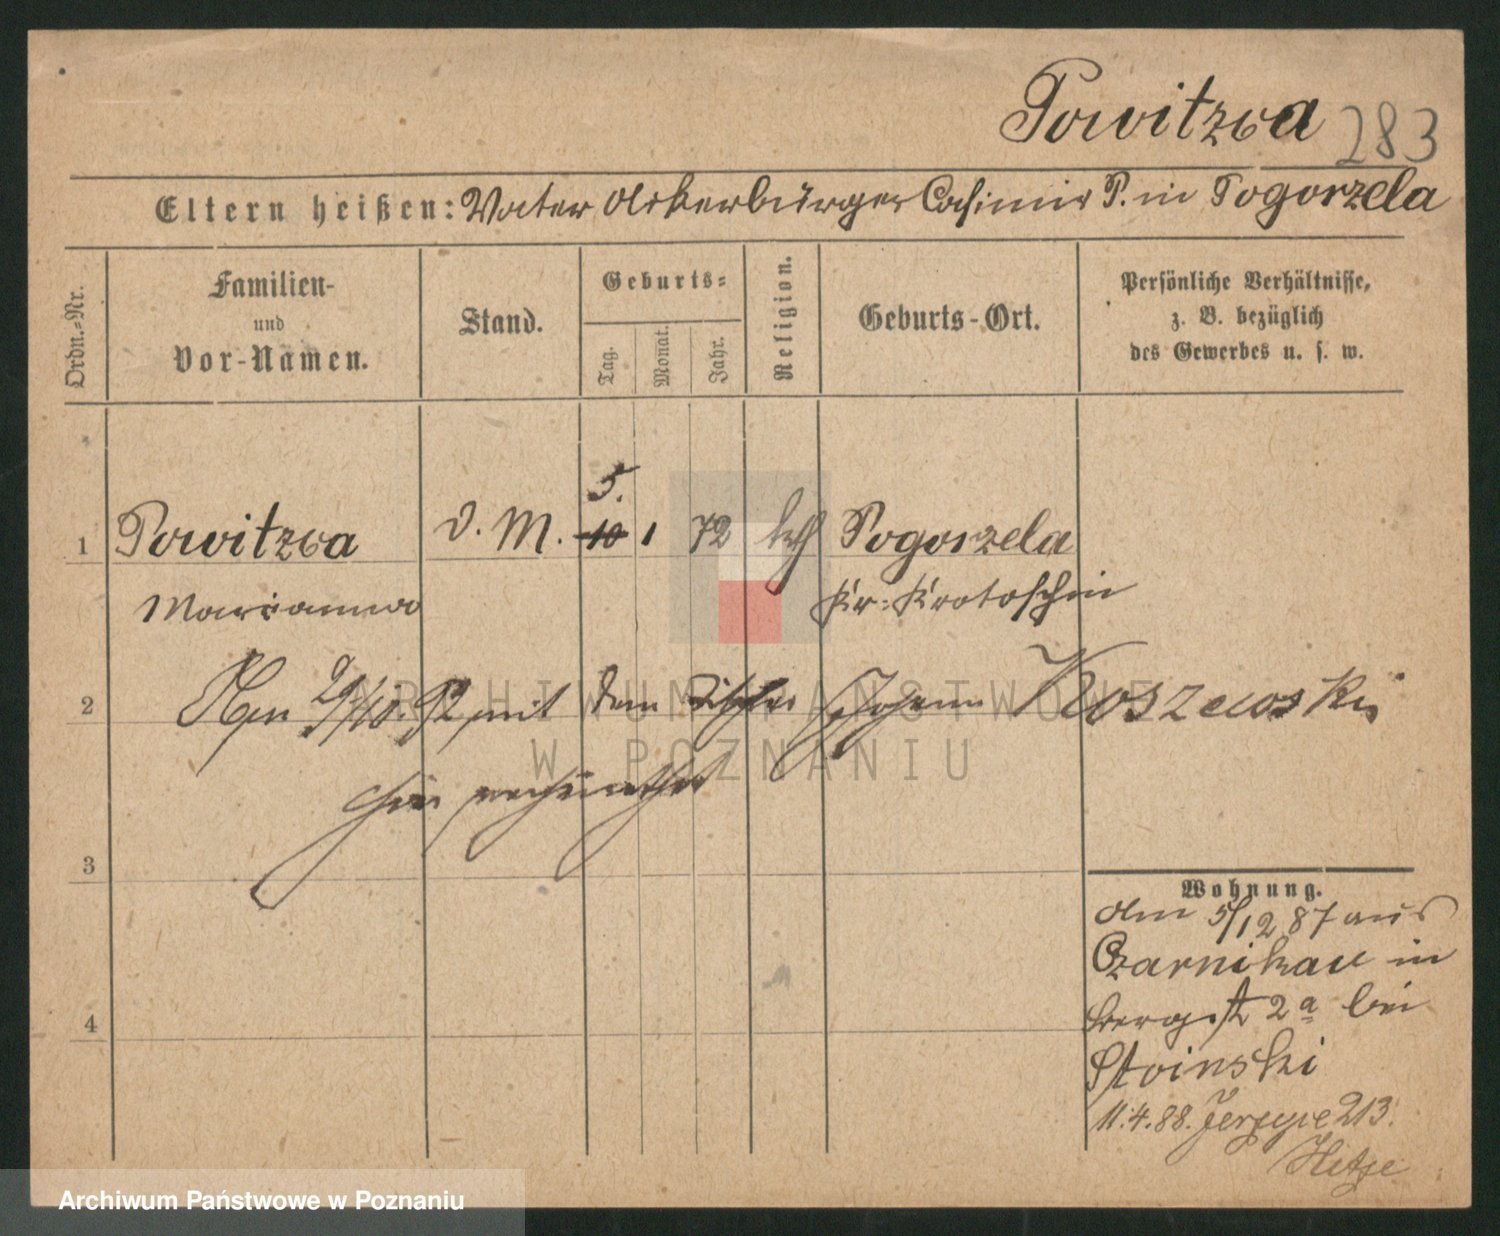 Powitzka 283
Eltern heißen: Vater Ackerbürger Casimir P. in Pogorzela
Ordn.-Nr.
Familien-
und
Vor-Namen.
Stand.
Geburts-
Tag.
Monat.
Jahr.
Religion.
Geburts-Ort.
Persönliche Verhältnisse,
z. B. bezüglich
des Gewerbes u. s. w.
5.
1 Powitzka D. M. 10 1 72 kth Pogorzela
Marianna Kr: Krotoschin
2 Am 29/10. 92 mit dem Tischler Johann Koszewski
hier verheirathet
3
4
Wohnung.
Am 5/12 87 aus
Czarnikau in
Bergstr 2a bei
Stoinski
11.4.88. Jersyce 213.
ARCHIWUM PAŃSTWOWE
W POZNANIU
Archiwum Państwowe w Poznaniu